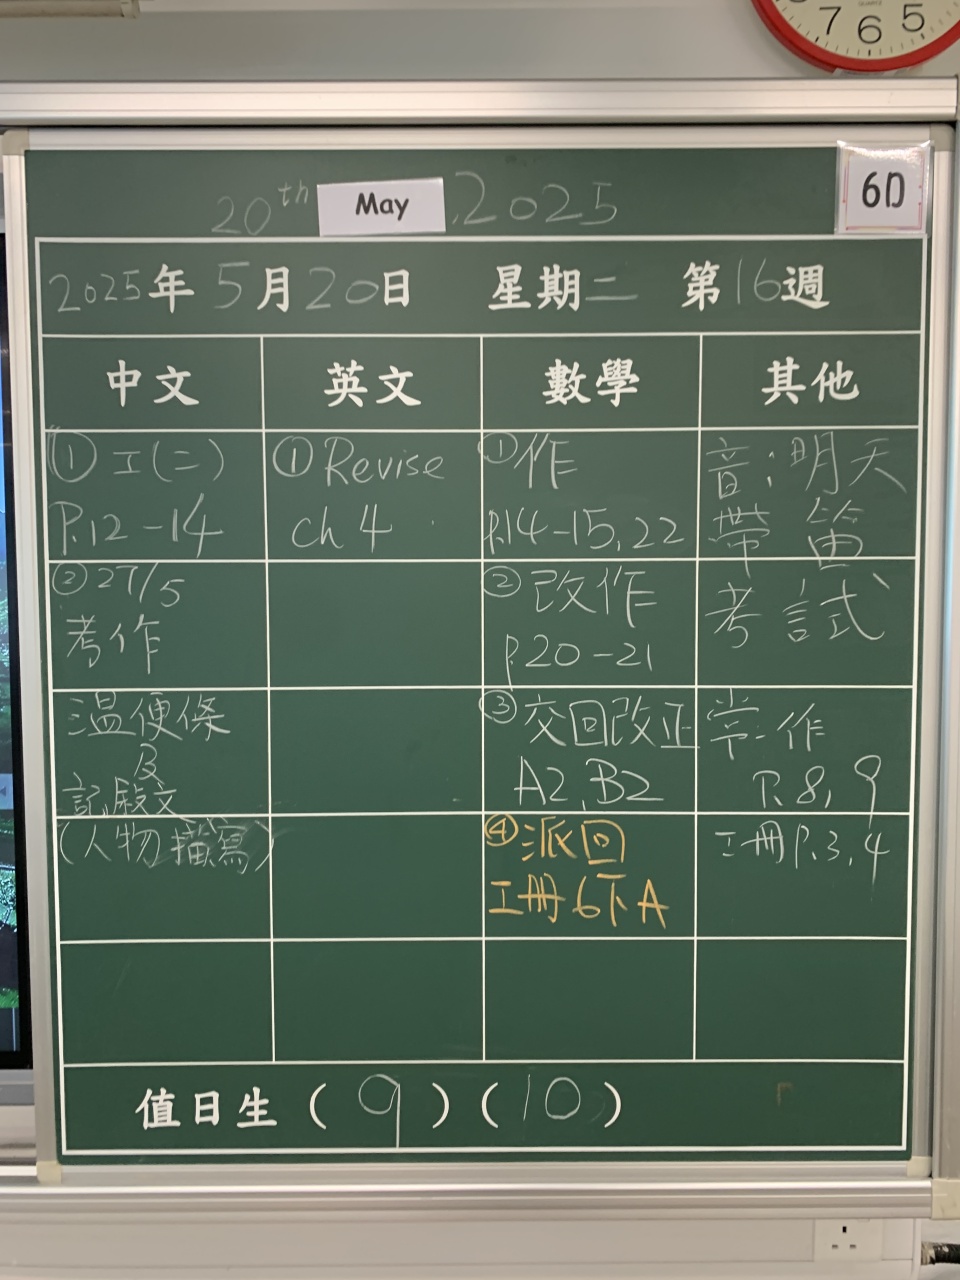 7 6 5
QUARTZ
20th May, 2025
6D
2025年5月20日 星期二 第16週
中文 英文 數學 其他
① 工(二)
P.12-14
② 27/5
考作
溫便條
及
記敍文
(人物描寫)
① Revise
ch 4
① 作
P.14-15, 22
② 改作
P.20-21
③ 交回改正
A2, B2
④ 派回
工冊6下A
音:明天
帶笛
考試
常:作
P. 8, 9
工冊 P.3, 4
值日生(9)(10)